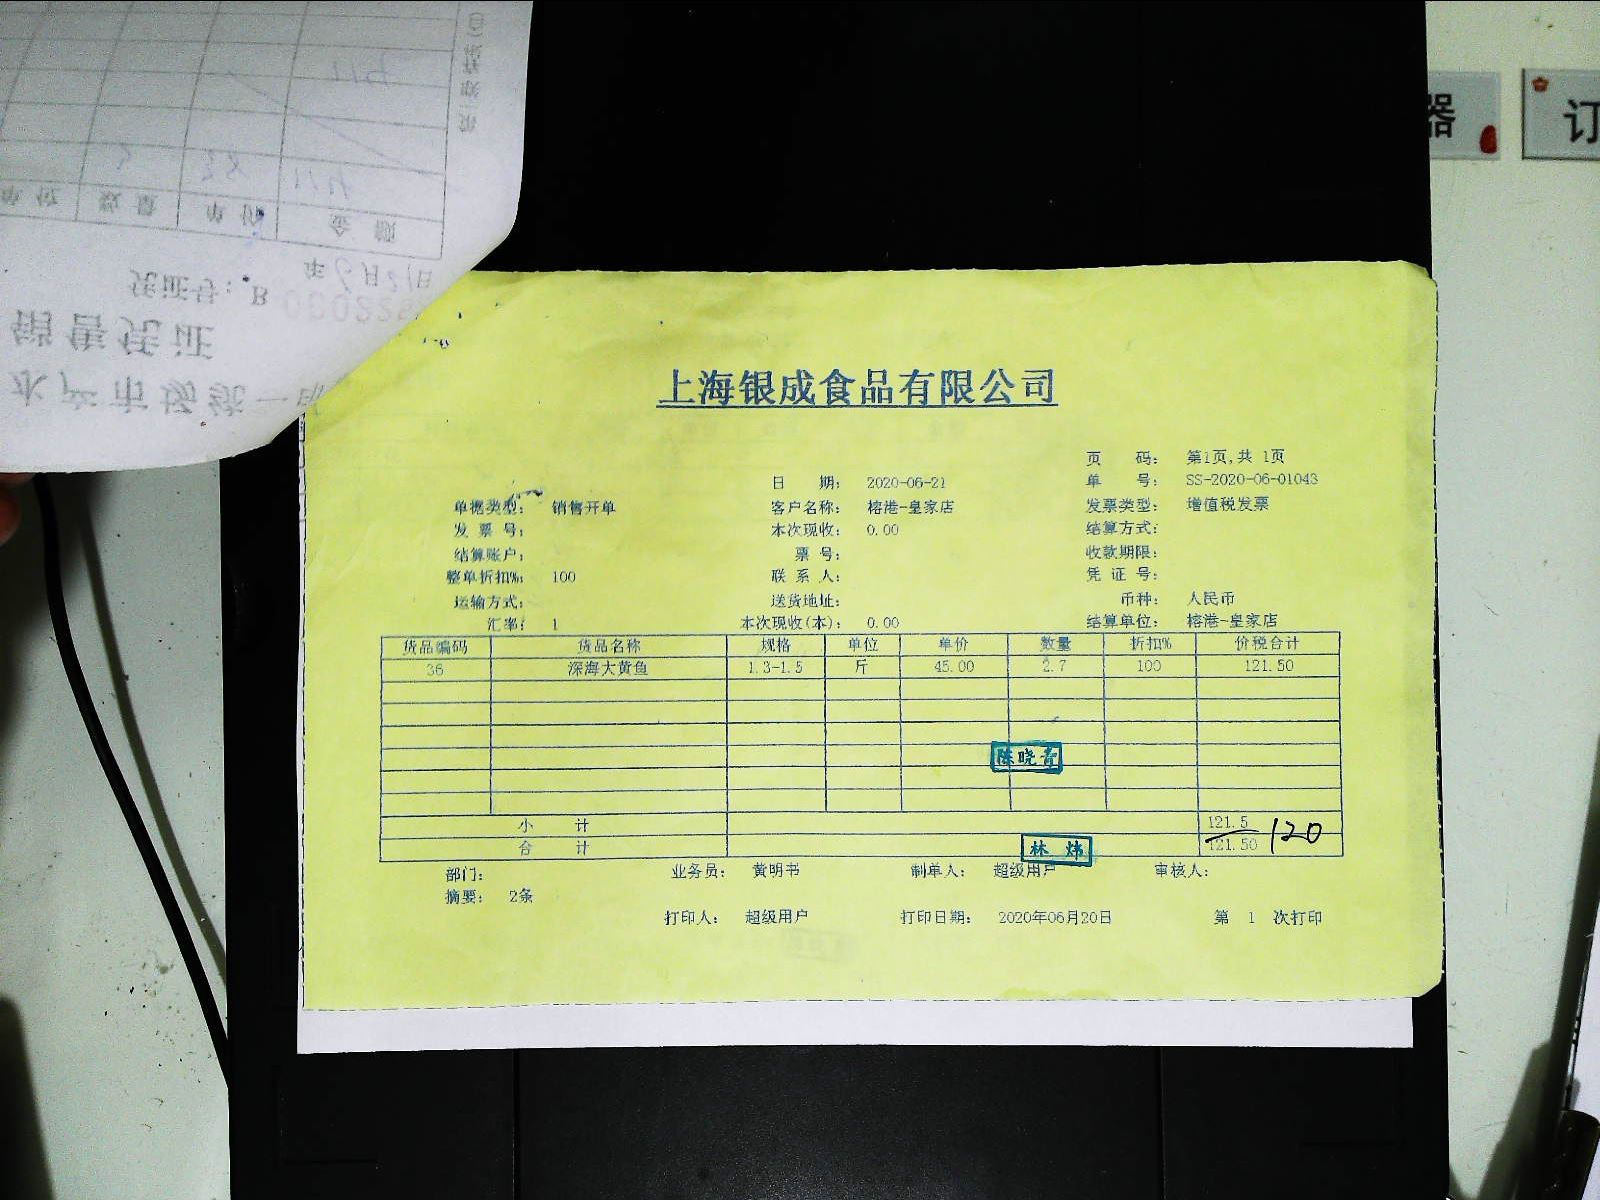 器
订
单价 数量 单价 金额
凭证号: B
年6月21日
销售凭证
水产市场统一
上海银成食品有限公司
页 码: 第1页,共 1页
日 期: 2020-06-21 单 号: SS-2020-06-01043
单据类型: 销售开单 客户名称: 榕港-皇家店 发票类型: 增值税发票
发 票 号: 本次现收: 0.00 结算方式:
结算账户: 票 号: 收款期限:
整单折扣%: 100 联 系 人: 凭 证 号:
运输方式: 送货地址: 币种: 人民币
汇率: 1 本次现收(本): 0.00 结算单位: 榕港-皇家店
货品编码 货品名称 规格 单位 单价 数量 折扣% 价税合计
36 深海大黄鱼 1.3-1.5 斤 45.00 2.7 100 121.50
陈晓青
小 计 121.5 120
合 计 121.50
林 炜
部门: 业务员: 黄明书 制单人: 超级用户 审核人:
摘要: 2条
打印人: 超级用户 打印日期: 2020年06月20日 第 1 次打印